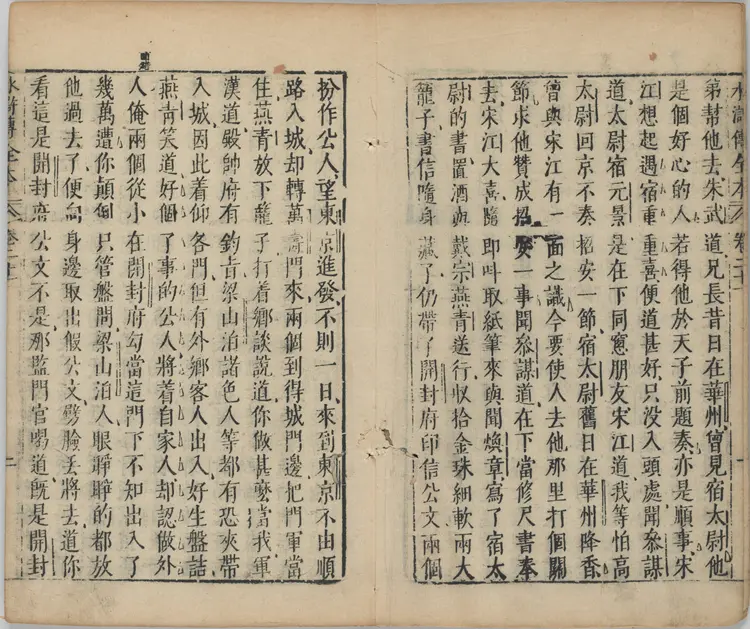 水滸傳全本 卷二十一
第幫他去朱武道兄長昔日在華州曾見宿太尉他
是個好心的人若得他於天子前題奏亦是順事宋
江想起遇宿重重喜便道甚好只没入頭處聞叅謀
道太尉宿元景是在下同窓朋友宋江道我等怕高
太尉回京不奏招安一節宿太尉舊日在華州降香
曾與宋江有一面之識今要使人去他那里打個關
節求他贊成招安一事聞叅謀道在下當修尺書奉
去宋江大喜隨即叫取紙筆來與聞煥章寫了宿太
尉的書置酒與戴宗燕青送行收拾金珠細軟兩大
籠子書信隨身藏了仍帶了開封府印信公文兩個
扮作公人望東京進發不則一日來到東京不由順
路入城却轉萬壽門來兩個到得城門邊把門軍當
住燕青放下籠子打着鄉談説道你做甚麽當我軍
漢道殿帥府有鈞旨梁山泊諸色人等都有恐夾帶
入城因此着仰各門但有外鄉客人出入好生盤詰
燕青笑道好個了事的公人將着自家人却認做外
人俺兩個從小在開封府勾當這門下不知出入了
幾萬遭你顛倒只管盤問梁山泊人眼睜睜的都放
他過去了便向身邊取出假公文劈臉丟將去道你
看這是開封府公文不是那監門官喝道既是開封
水滸傳全本